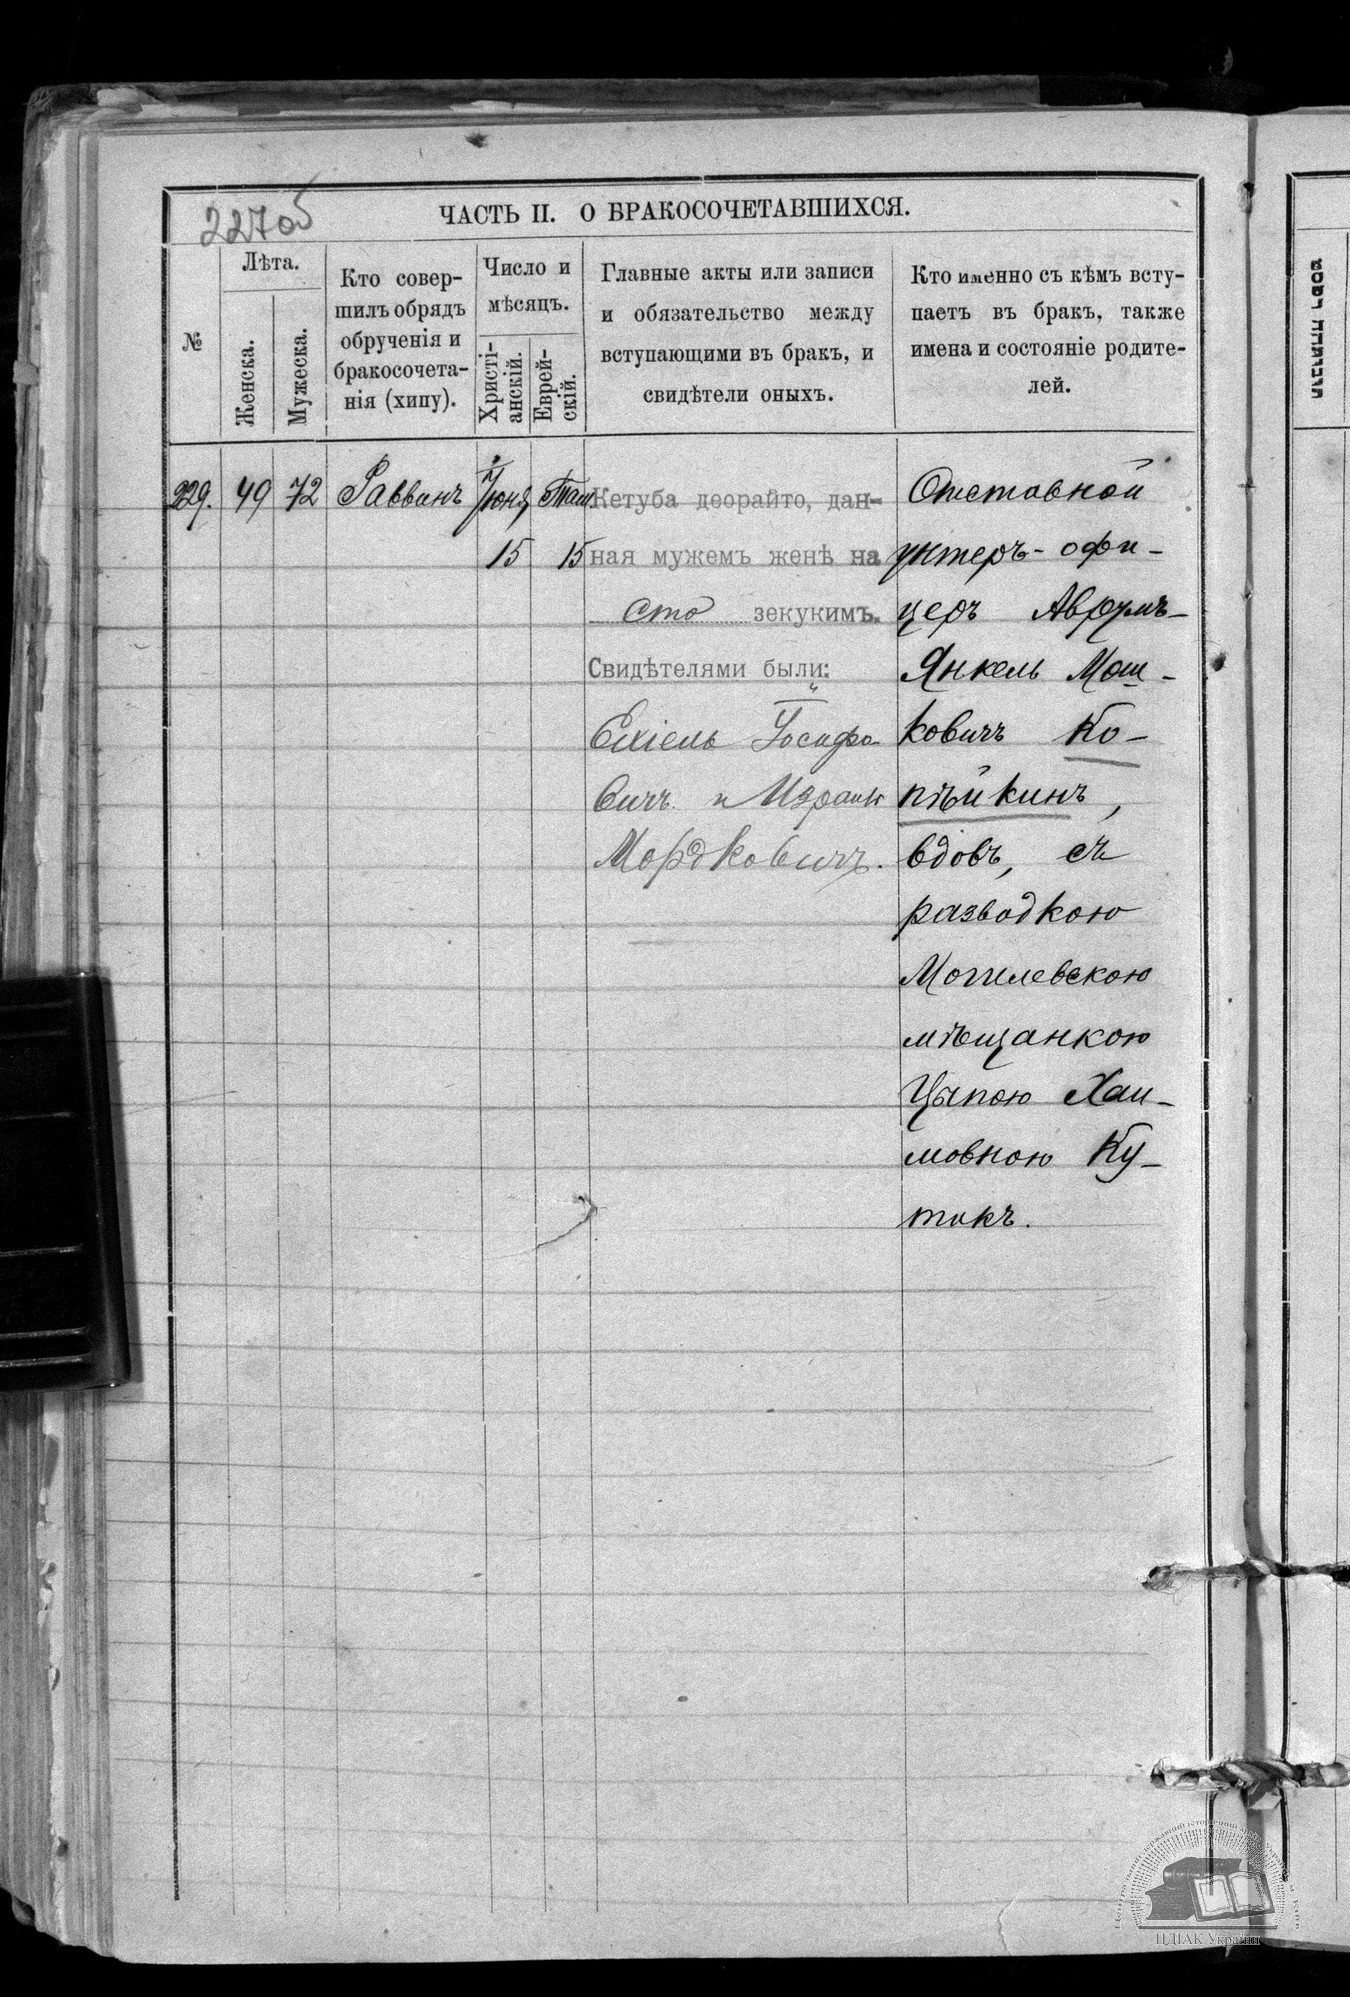 227об
ЧАСТЬ II. О БРАКОСОЧЕТАВШИХСЯ.
№
Лѣта.
Женска.
Мужеска.
Кто совер-
шилъ обрядъ
обрученія и
бракосочета-
нія (хипу).
Число и
мѣсяцъ.
Христі-
анскій.
Еврей-
скій.
Главные акты или записи
и обязательство между
вступающими въ бракъ, и
свидѣтели оныхъ.
Кто именно съ кѣмъ всту-
паетъ въ бракъ, также
имена и состояніе родите-
лей.
229. 49 72 Раввинъ Іюня Там.
15 15
Кетуба деорайто, дан-
ная мужемъ женѣ на
сто зекукимъ.
Свидѣтелями были:
Ехіель Іосифо-
вичъ и Израиль
Мордковичъ.
Отставной
унтеръ-офи-
церъ Аврумъ-
Янкель Мош-
ковичъ Ко-
пѣйкинъ,
вдовъ, съ
разводкою
Могилевскою
мѣщанкою
Цыпою Хаи-
мовною Ку-
тикъ.
ЦДІАК України